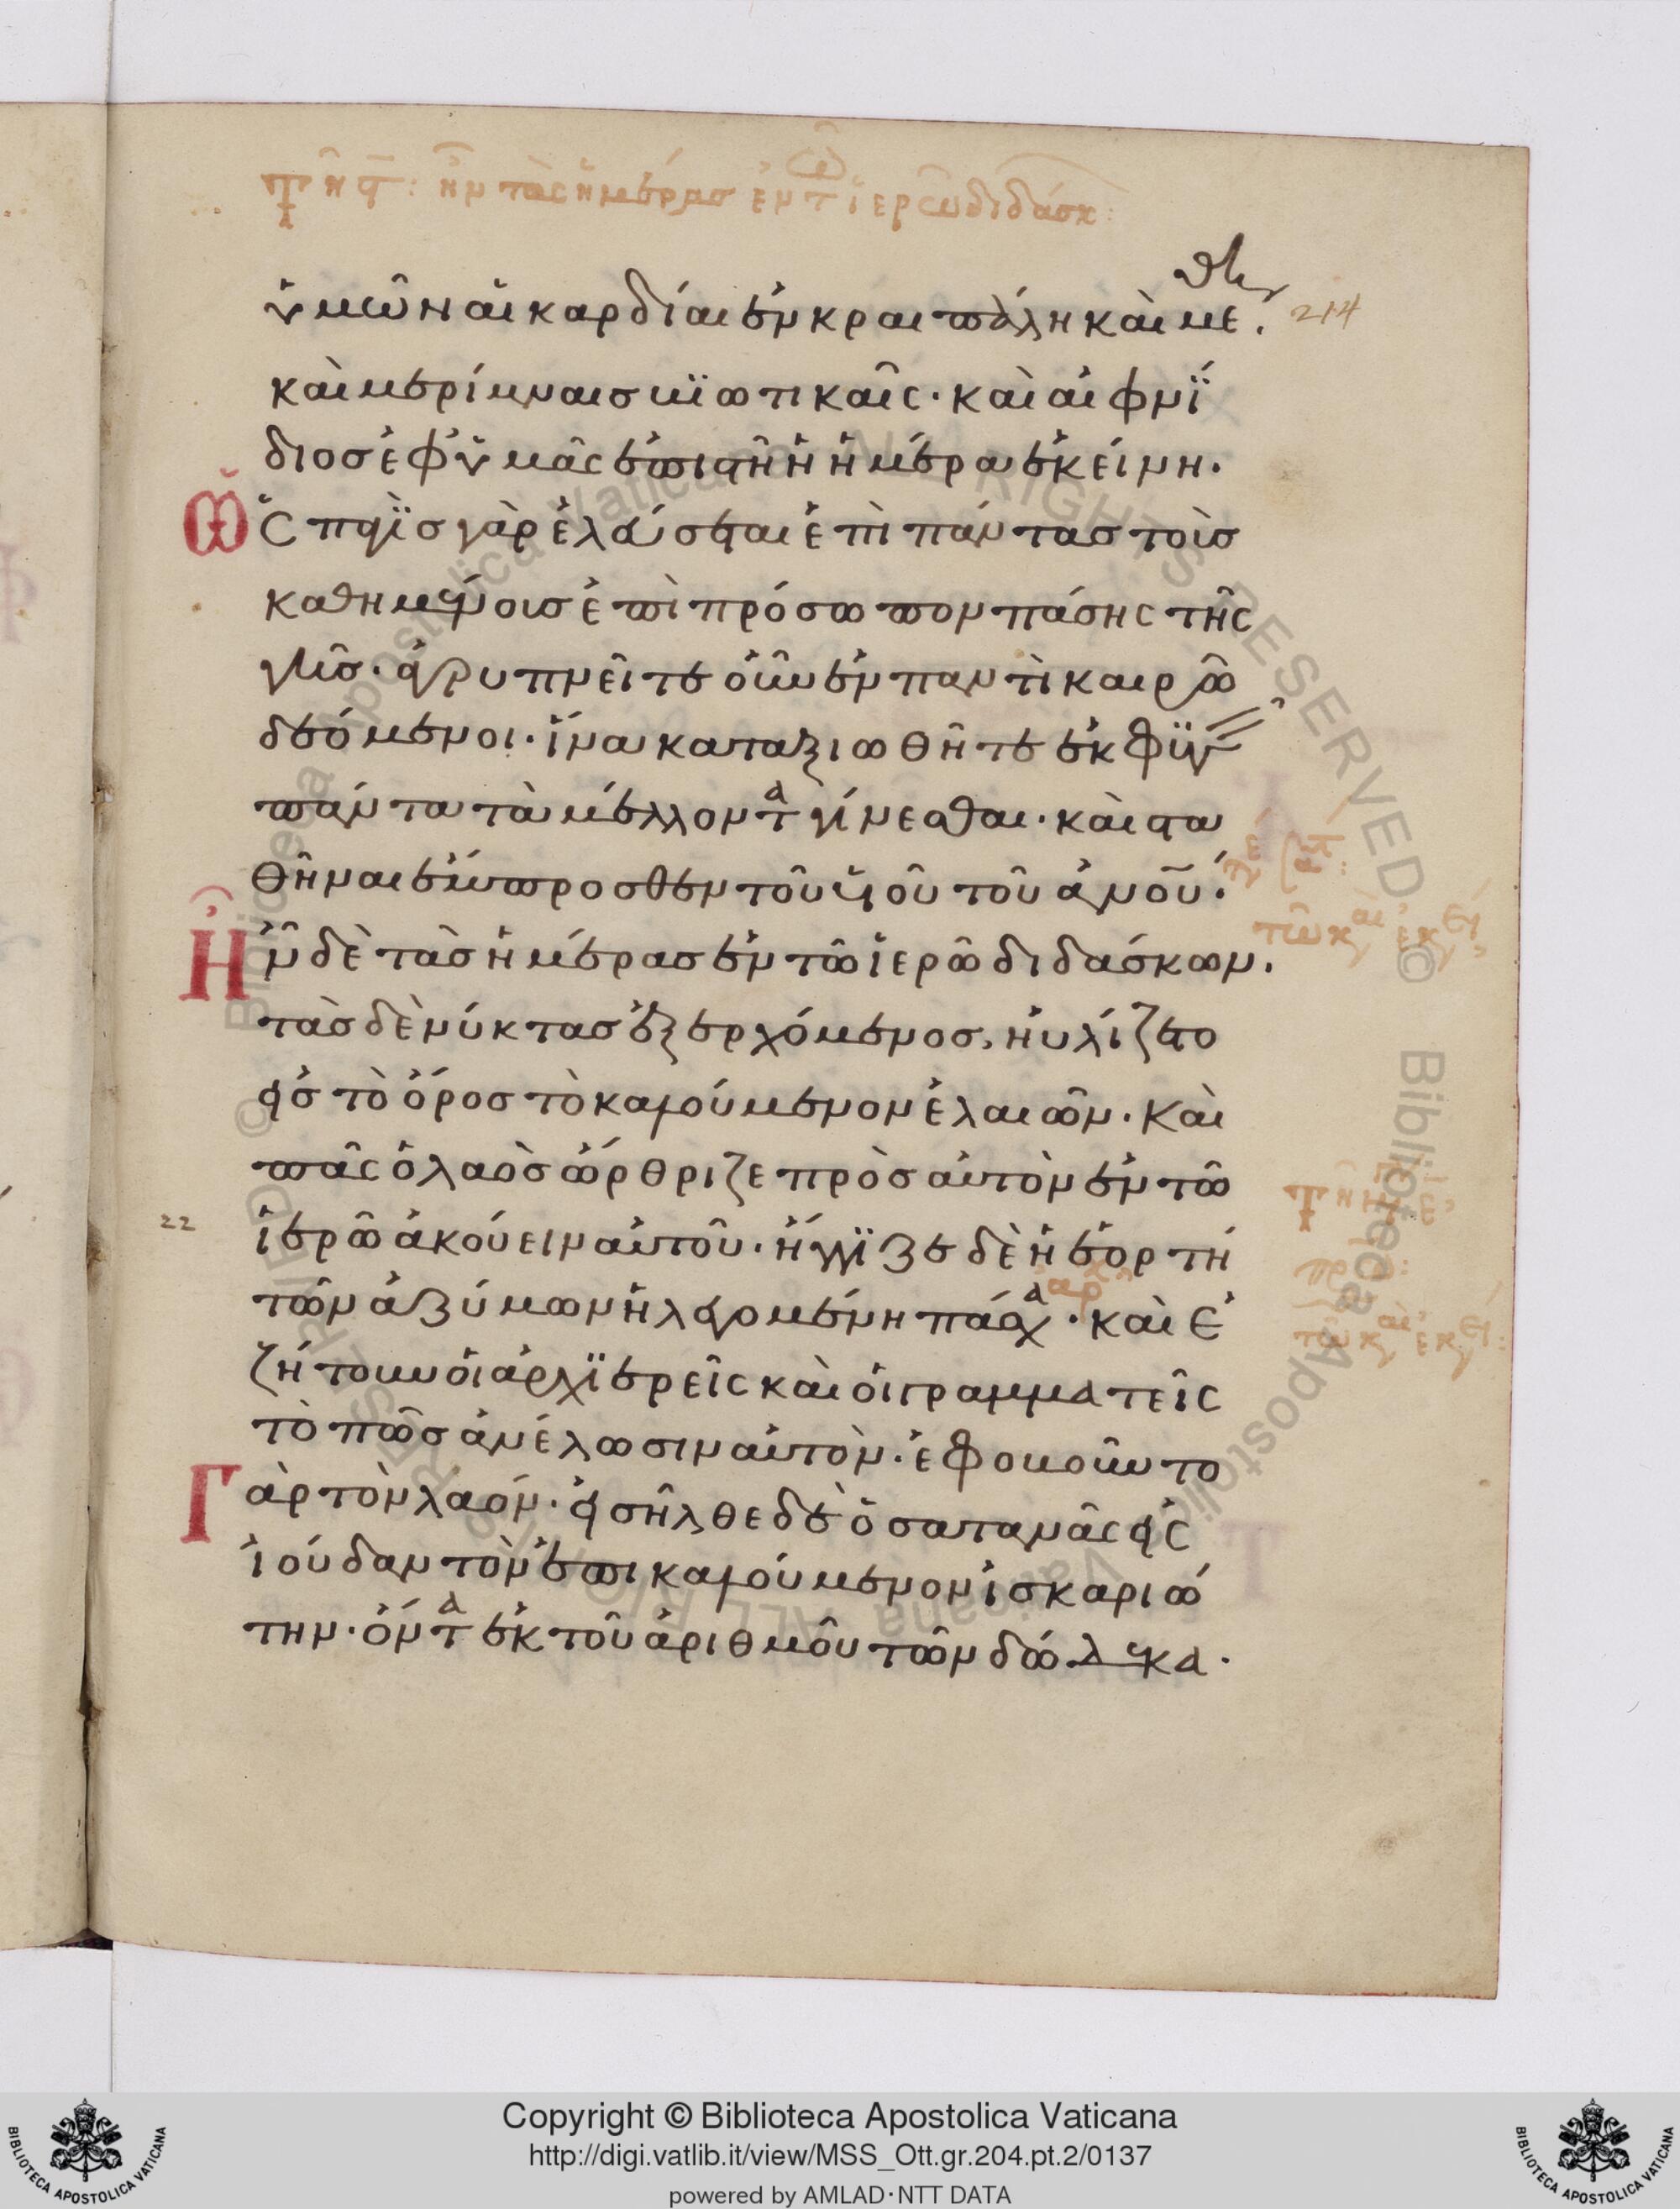 ὑμῶν αἱ καρδίαι ἐν κραιπάλη καὶ μέθη
214
καὶ μερίμναις βϊωτικαῖς· καὶ αἰφνΐ
διος ἐφ ὑμᾶς ἐπιστῆ ἡ ἡμέρα ἐκείνη·
Ὡς παγῒς γὰρ ἐλεύσεται ἐπὶ πάντας τοὺς
καθημένους ἐπὶ πρόσωπον πάσης τῆς
γῆς· ἀγρυπνεῖτε οὖν ἐν παντὶ καιρῶ
δεόμενοι· ἵνα καταξιωθῆτε ἐκφυγεῖν
πάντα τὰ μέλλοντα γίνεσθαι· καὶ στα
θῆναι ἔμπροσθεν τοῦ υἱοῦ τοῦ ἀνου·
Ἦν δὲ τὰς ἡμέρας ἐν τῶ ἱερῶ διδάσκων·
τὰς δὲ νύκτας ἐξερχόμενος, ηὐλίζετο
εἰς τὸ ὄρος τὸ καλούμενον ἐλαιῶν· καὶ
πᾶς ὁ λαὸς ὤρθριζε πρὸς αὐτὸν ἐν τῶ
22
ἱερῶ ἀκούειν αὐτοῦ· ἤγγϊζε δὲ ἡ ἑορτὴ
τῶν ἀζύμων ἡ λεγομένη πάσχα· καὶ ἐ
ζήτουν οἱ ἀρχϊερεῖς καὶ οἱ γραμματεῖς
τὸ πῶς ἀνέλωσιν αὐτὸν· ἐφοβοῦντο
Γὰρ τὸν λαόν· εἰσῆλθε δὲ ὁ σατανᾶς εἰς
ἰούδαν τὸν ἐπικαλούμενον ἰσκαριώ
την· ὄντα ἐκ τοῦ ἀριθμοῦ τῶν δώδεκα·
Copyright © Biblioteca Apostolica Vaticana
http://digi.vatlib.it/view/MSS_Ott.gr.204.pt.2/0137
powered by AMLAD·NTT DATA
BIBLIOTECA APOSTOLICA VATICANA
BIBLIOTECA APOSTOLICA VATICANA